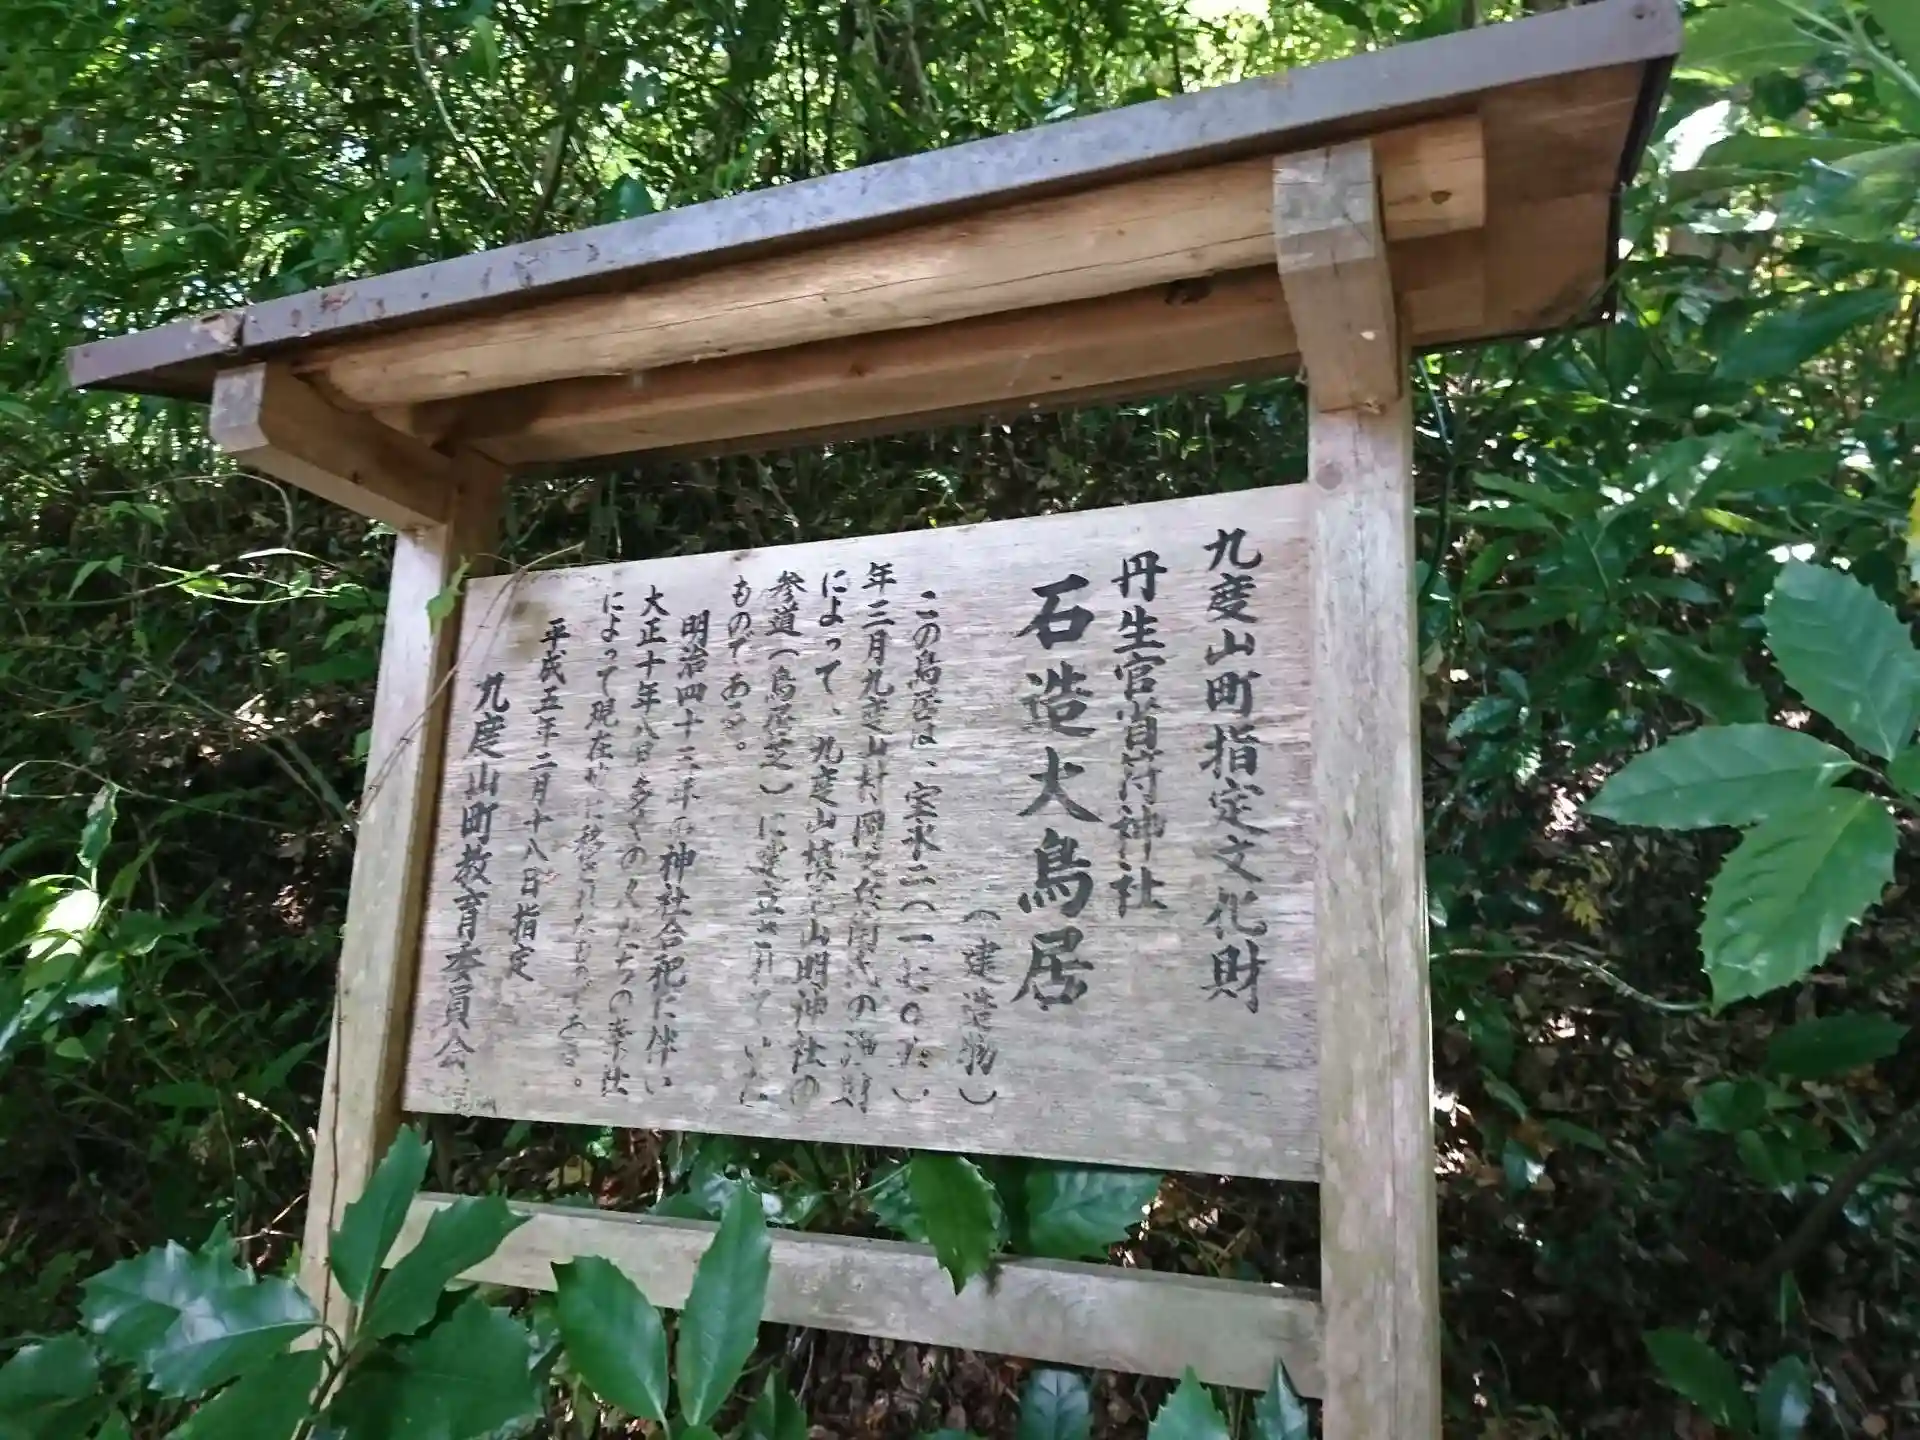 九度山町指定文化財
丹生官省符神社
石造大鳥居
（建造物）
この鳥居は、宝永二（一七〇五）
年三月九度山村岡 兵衛 の 財
によって、九度山槙 山明神社の
参道（鳥居芝）に建立されていた
ものである。
明治四十三年の神社合祀に伴い
大正十年八日多くの人たちの奉仕
によって現在地に移されたものである。
平成五年二月十八日指定
九度山町教育委員会